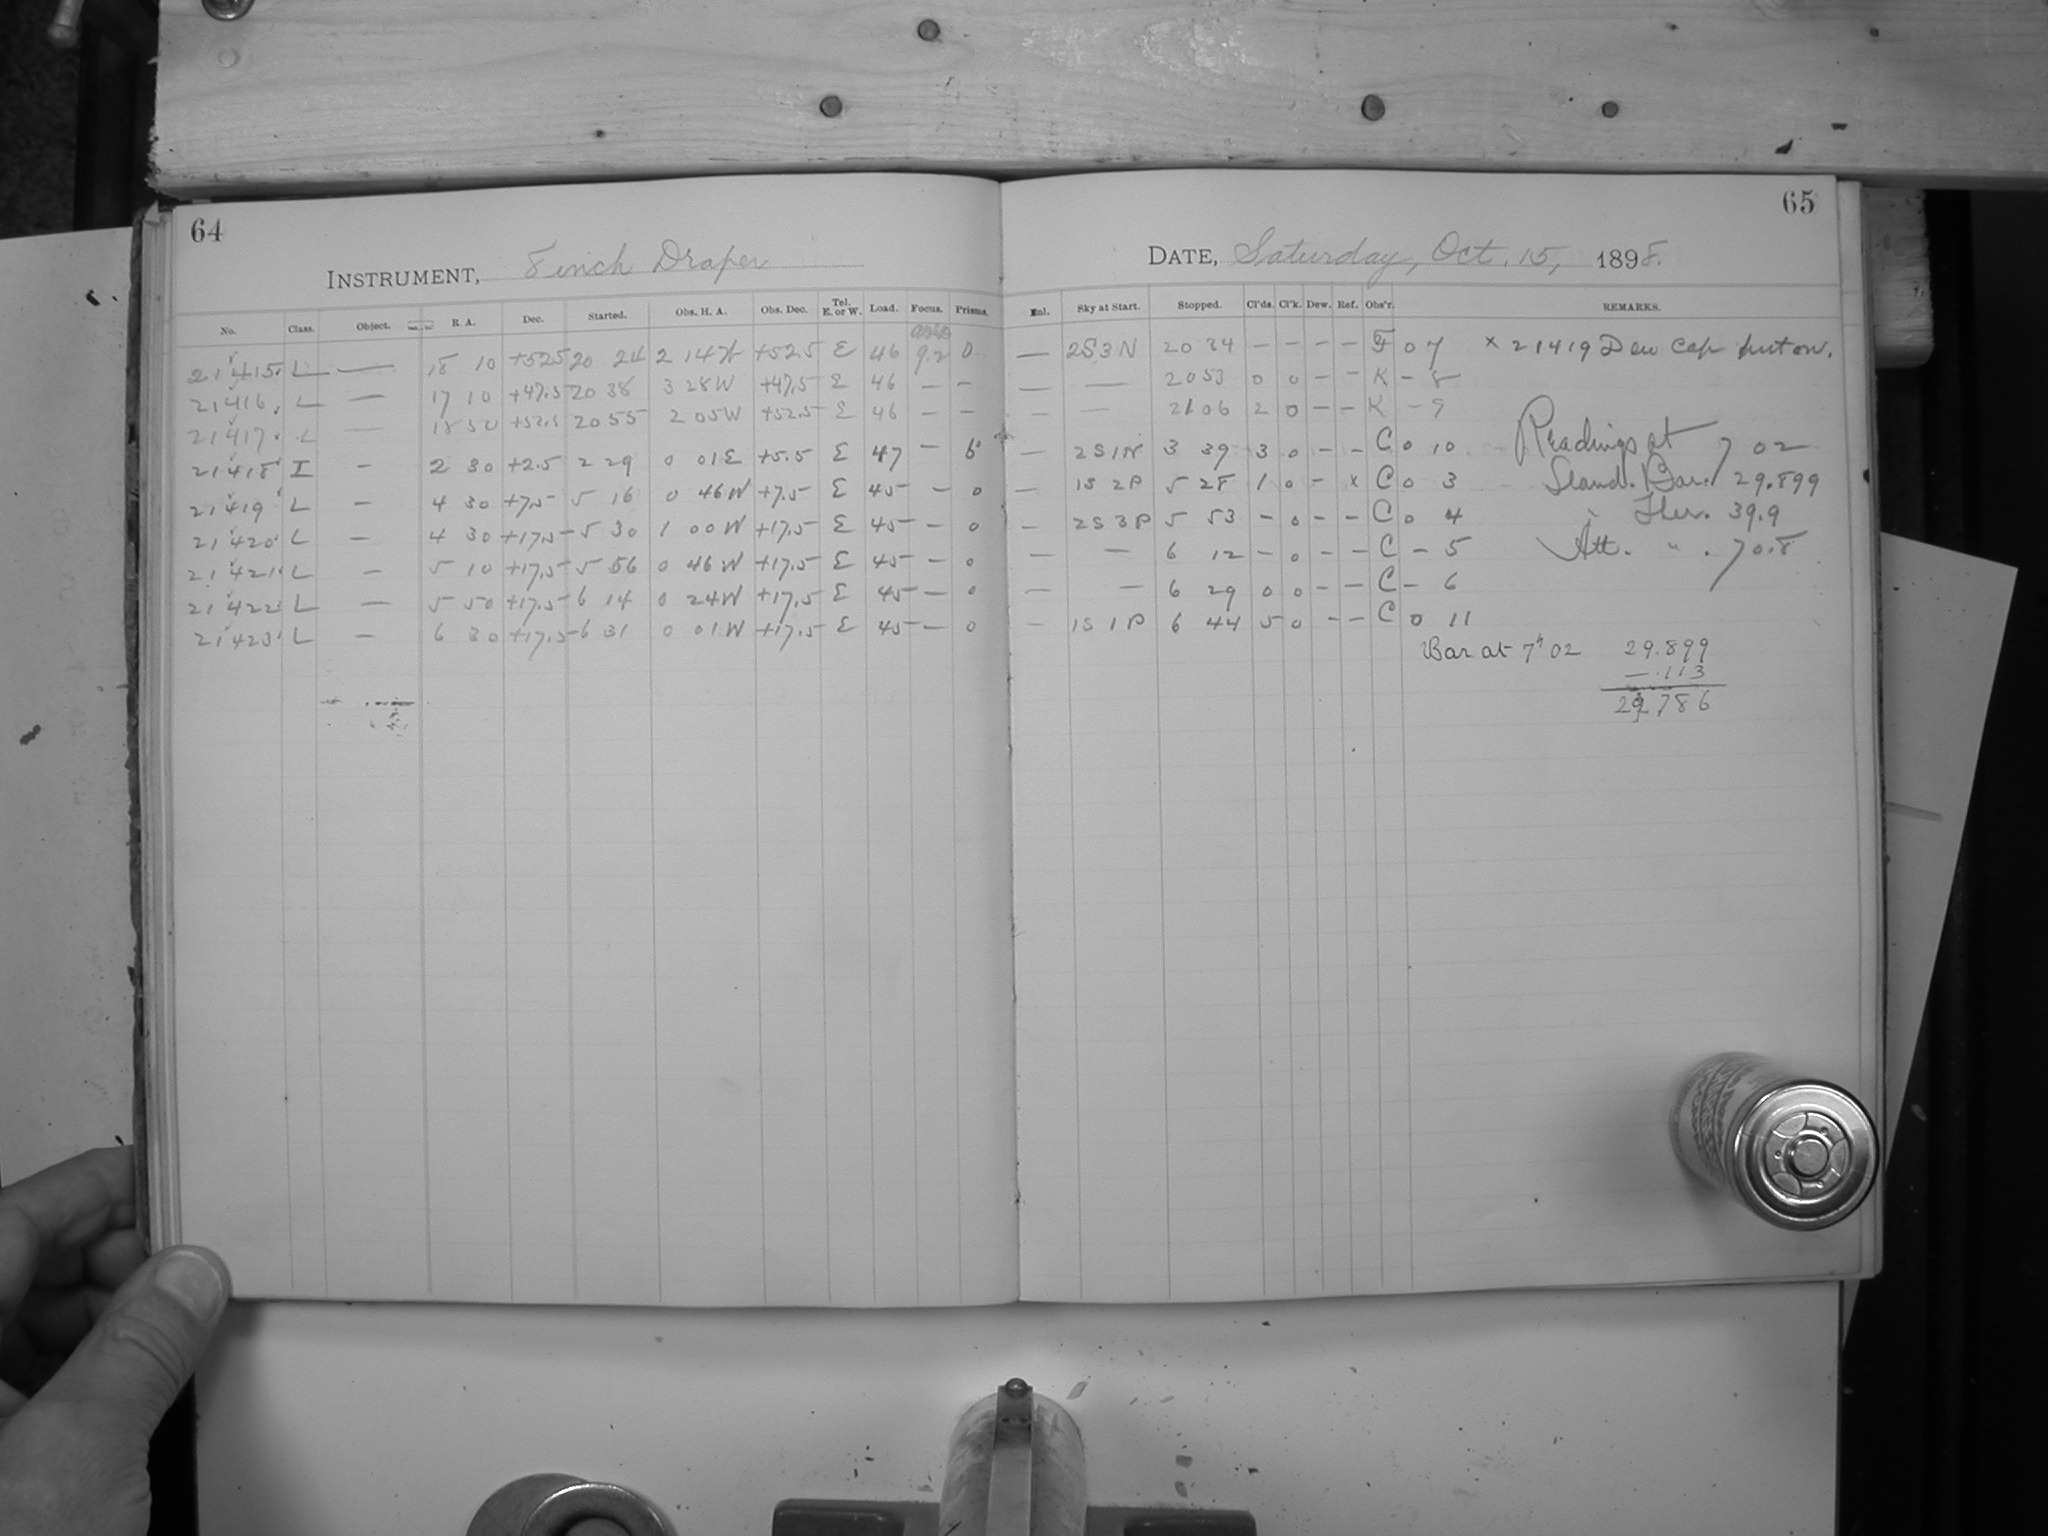 64
INSTRUMENT, 8 inch Draper
No. Class. Object. R. A. Dec. Started. Obs. H. A. Obs. Dec. Tel. E. or W. Load. Focus. Prisms.
21415 L — 18 10 +52.5 20 24 2 14W +52.5 E 46 9.2 0
21416 L — 17 10 +47.5 20 38 3 28W +47.5 E 46 — —
21417 L — 18 50 +52.5 20 55 2 05W +52.5 E 46 — —
21418 I — 2 30 +2.5 2 29 0 01E +5.5 E 47 —
21419 L — 4 30 +7.5 5 16 0 46W +7.5 E 45 — 0
21420 L — 4 30 +17.5 5 30 1 00W +17.5 E 45 — 0
21421 L — 5 10 +17.5 5 56 0 46W +17.5 E 45 — 0
21422 L — 5 50 +17.5 6 14 0 24W +17.5 E 45 — 0
21423 L — 6 30 +17.5 6 31 0 01W +17.5 E 45 — 0
65
DATE, Saturday, Oct. 15, 1898.
Enl. Sky at Start. Stopped. Cl'ds. Cl'k. Dew. Ref. Obs'r. REMARKS.
— 2S3N 20 34 — — — — F 0 7 x 21419 Dew cap put on.
— — 20 53 0 0 — — K — 8
— — 21 06 2 0 — — K — 9
— 2S1N 3 39 3 0 — — C 0 10 Readings at 7 02
— 1S 2P 5 28 1 0 — x C 0 3 Stand. Bar. 29.899
— 2S 3P 5 53 — 0 — — C 0 4 " Ther. 39.9
— — 6 12 — 0 — — C — 5 Att. " . 70.8
— — 6 29 0 0 — — C — 6
— 1S 1P 6 44 5 0 — — C 0 11
Bar at 7h 02 29.899
— .113
29.786